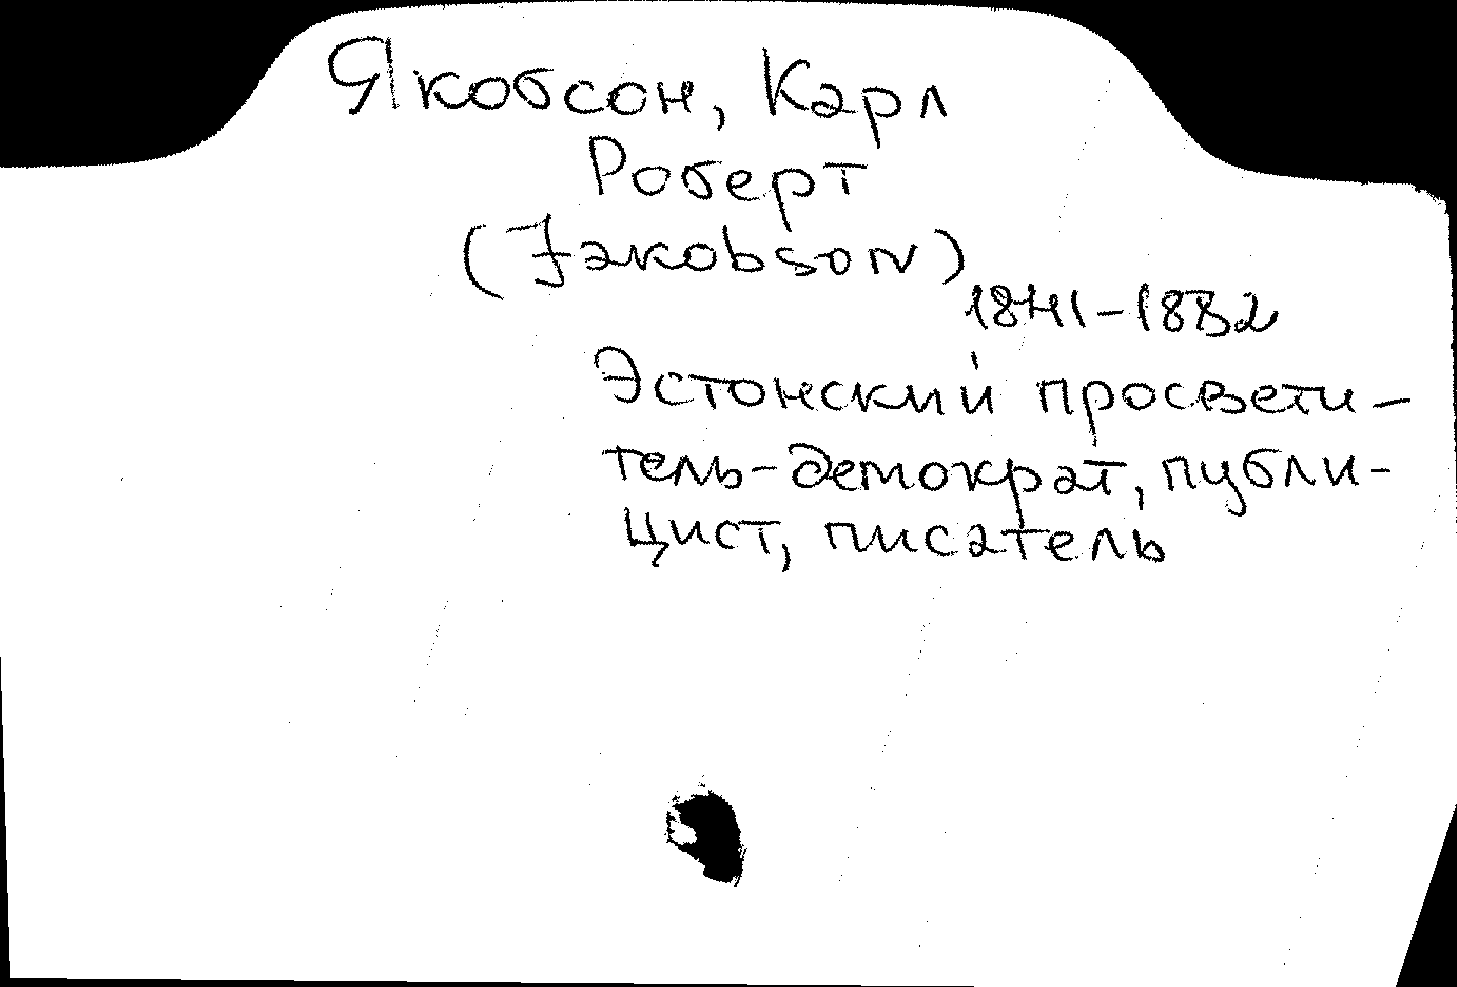 Якобсон, Карл
Роберт
(Jakobson)
1841-1882
Эстонский просвети-
тель-демократ, публи-
цист, писатель